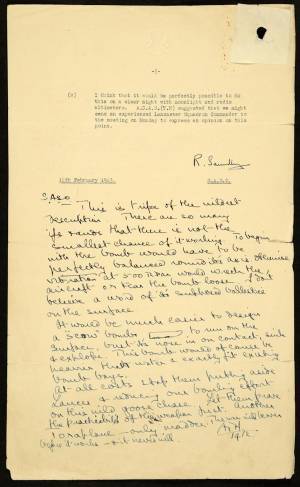 - 2 -
(8) I think that it would be perfectly possible to do
this on a clear night with moonlight and radio
altimeters. A.C.A.S.(T.R) suggested that we might
send an experienced Lancaster Squadron Commander to
the meeting on Monday to express an opinion on this
point.
R. Saundby
14th February 1943. S.A.S.O.
This is tripe of the wildest
description. There are so many
ifs & ands that there is not the
smallest chance of its working. To begin
with the bomb would have to be
perfectly balanced round its axis otherwise
vibration at 500 RPM would wreck the
aircraft or tear the bomb loose. I don't
believe a word of its supposed ballistics
on the surface.
It would be much easier to design
a "scow" bomb to run on the
surface, bust its nose in on contact, sink
& explode. This bomb would of course be
heavier than water & exactly fit existing
bomb bays.
At all costs stop them putting aside
Lancs & reducing our bombing effort
on this wild goose chase. Let them prove
the practicability of the weapon first. Another
Toraplane - only madder. The war will be over
before it works - & it never will.
A.H.
14/2.